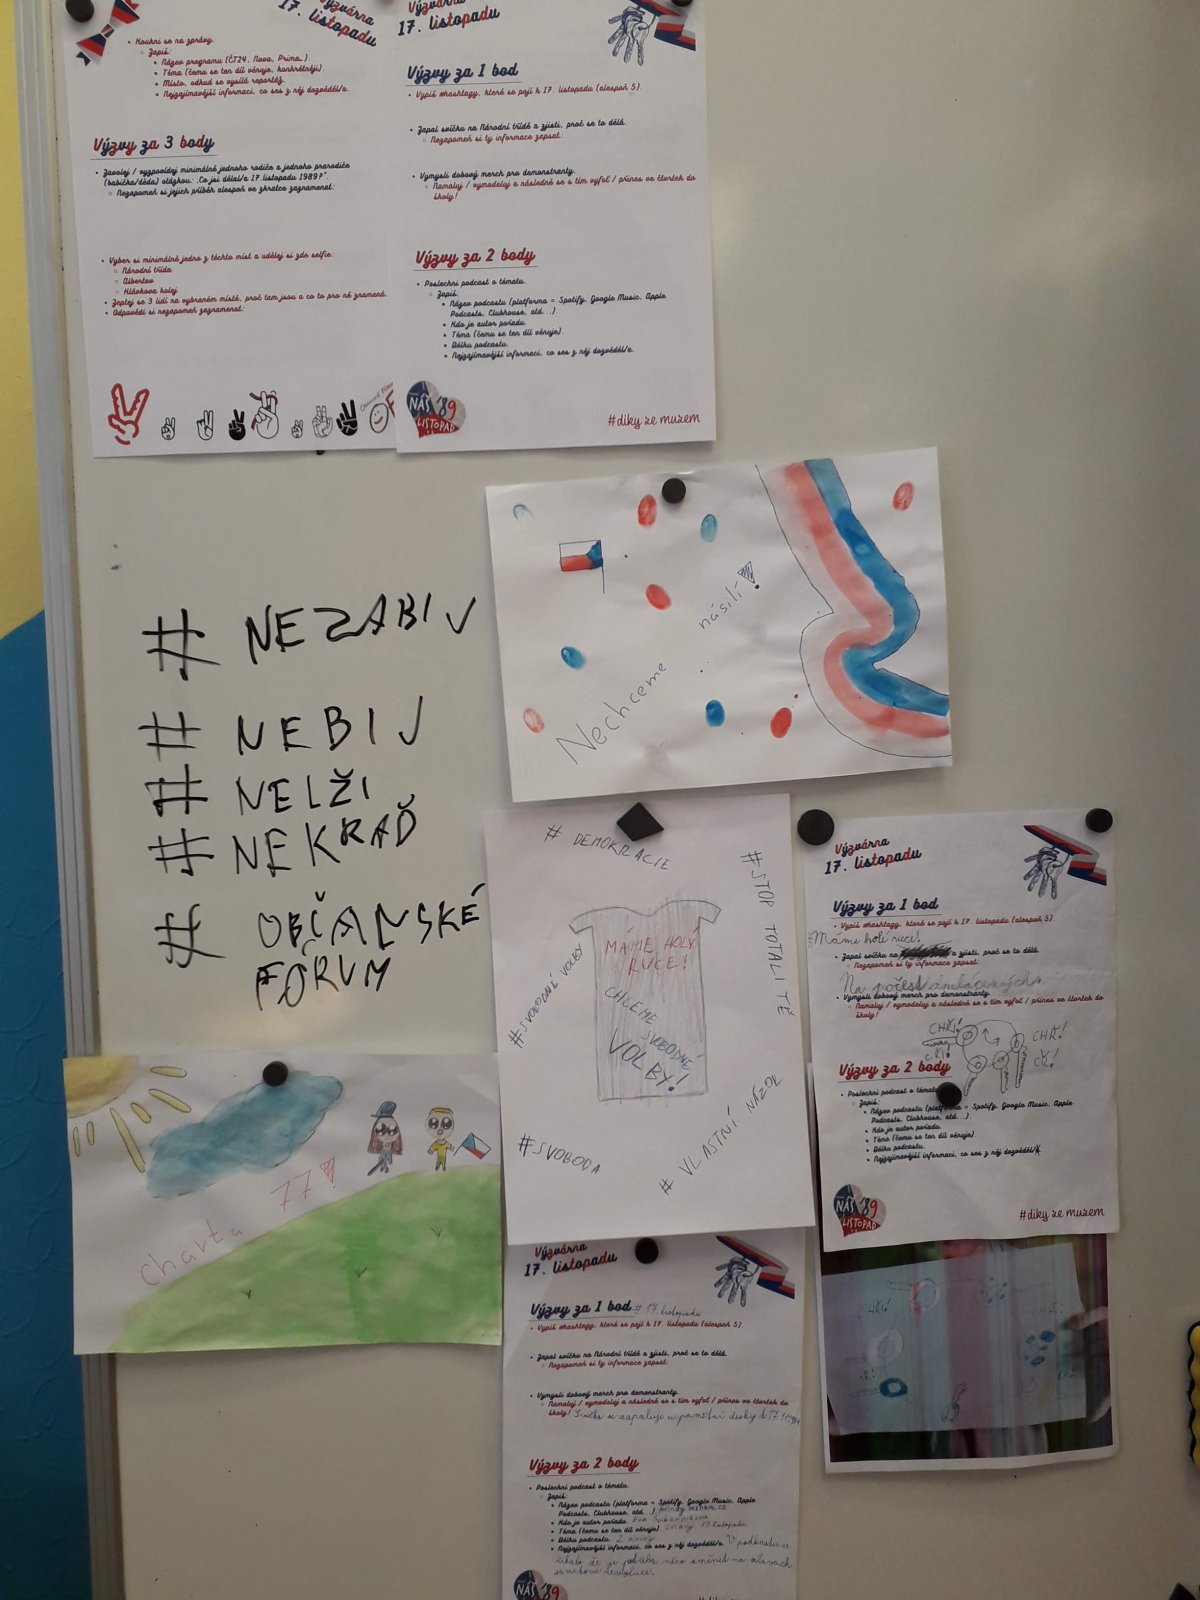 Výzvárna
17. listopadu
• Koukni se na zprávy.
○ Zapiš:
▪ Název programu (ČT24, Nova, Prima…).
▪ Téma (čemu se ten díl věnuje, konkrétněji).
▪ Místo, odkud se vysílá reportáž.
▪ Nejzajímavější informaci, co ses z něj dozvěděl/a.
Výzvy za 3 body
• Zavolej / vyzpovídej minimálně jednoho rodiče a jednoho prarodiče
(babička/děda) otázkou: „Co jsi dělal/a 17 listopadu 1989?“
○ Nezapomeň si jejich příběh alespoň ve zkratce zaznamenat:
• Vyber si minimálně jedno z těchto míst a udělej si zde selfie:
○ Národní třída
○ Albertov
○ Hlávkova kolej
• Zeptej se 3 lidí na vybraném místě, proč tam jsou a co to pro ně znamená.
• Odpovědi si nezapomeň zaznamenat:
Výzvárna
17. listopadu
Výzvy za 1 bod
• Vypiš #hashtagy, které se pojí k 17. listopadu (alespoň 5).
• Zapal svíčku na Národní třídě a zjisti, proč se to dělá.
○ Nezapomeň si ty informace zapsat:
• Vymysli dobový merch pro demonstranty.
○ Namaluj / vymodeluj a následně se s tím vyfoť / přines ve čtvrtek do
školy!
Výzvy za 2 body
• Poslechni podcast o tématu.
○ Zapiš:
▪ Název podcastu (platforma = Spotify, Google Music, Apple
Podcasts, Clubhouse, atd...).
▪ Kdo je autor pořadu.
▪ Téma (čemu se ten díl věnuje).
▪ Délku podcastu.
▪ Nejzajímavější informaci, co ses z něj dozvěděl/a.
NÁŠ '89
LISTOPAD
#díky že můžem
# NEZABIJ
# NEBIJ
# NELŽI
# NEKRAĎ
# OBČANSKÉ
FÓRUM
Nechceme násilí!
# DEMOKRACIE
#STOP TOTALITĚ
MÁME HOLÝ
RUCE!
CHCEME
SVOBODNÉ
VOLBY!
#SVOBODNÉ VOLBY
#SVOBODA
# VLASTNÍ NÁZOR
Charta 77!
Výzvárna
17. listopadu
Výzvy za 1 bod
• Vypiš #hashtagy, které se pojí k 17. listopadu (alespoň 5)
#Máme holé ruce!
• Zapal svíčku na a zjisti, proč se to dělá.
○ Nezapomeň si ty informace zapsat:
Na počest
• Vymysli dobový merch pro demonstranty.
○ Namaluj / vymodeluj a následně se s tím vyfoť / přines ve čtvrtek do
školy!
CHŘ!
CHŘ!
Výzvy za 2 body
• Poslechni podcast o tématu
○ Zapiš:
▪ Název podcastu = Spotify, Google Music, Apple
Podcasts, Clubhouse, atd...)
▪ Kdo je autor pořadu.
▪ Téma (čemu se ten díl věnuje).
▪ Délku podcastu.
▪ Nejzajímavější informaci, co ses z něj dozvěděl/a.
NÁŠ '89
LISTOPAD
#díky že můžem
Výzvárna
17. listopadu
Výzvy za 1 bod # 17. listopadu
• Vypiš #hashtagy, které se pojí k 17. listopadu (alespoň 5)
• Zapal svíčku na Národní třídě a zjisti, proč se to dělá.
○ Nezapomeň si ty informace zapsat:
• Vymysli dobový merch pro demonstranty.
○ Namaluj / vymodeluj a následně se s tím vyfoť / přines ve čtvrtek do
školy! Svíčka se zapaluje u pamětní desky
Výzvy za 2 body
• Poslechni podcast o tématu.
○ Zapiš:
▪ Název podcastu (platforma = Spotify, Google Music, Apple
Podcasts, Clubhouse, atd...)
▪ Kdo je autor pořadu.
▪ Téma (čemu se ten díl věnuje) 17 listopadu
▪ Délku podcastu.
▪ Nejzajímavější informaci, co ses z něj dozvěděl/a. V podcastu se
říkalo, že je potřeba něco změnit na oslavách
sametové revoluce.
NÁŠ '89